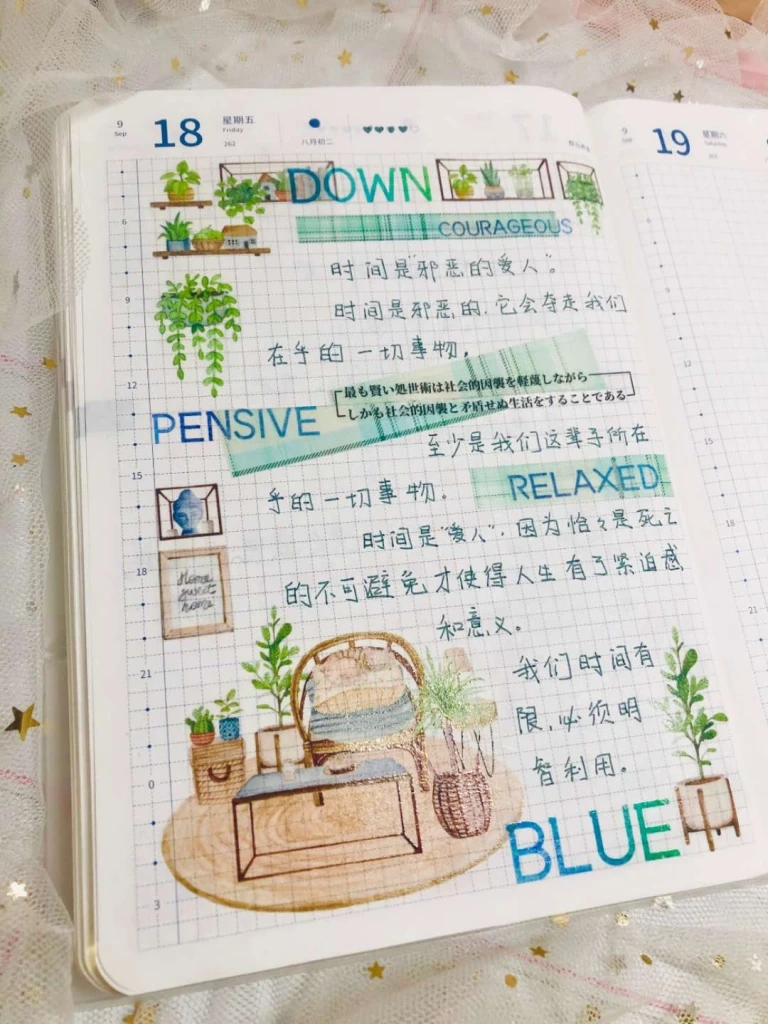 9
Sep
18
星期五
Friday
262
八月初二
9
19
星期六
Saturday
DOWN
COURAGEOUS
时间是“邪恶的爱人”。
时间是邪恶的.它会夺走我们
在乎的一切事物,
最も賢い処世術は社会的因襲を軽蔑しながら
しかも社会的因襲と矛盾せぬ生活をすることである
PENSIVE
至少是我们这辈子所在
乎的一切事物.
RELAXED
时间是“爱人”.因为恰々是死亡
的不可避免才使得人生有了紧迫感
和意义。
Home
sweet
home
我们时间有
限,必须明
智利用。
BLUE
6
9
12
15
18
21
0
3
6
9
12
15
18
21